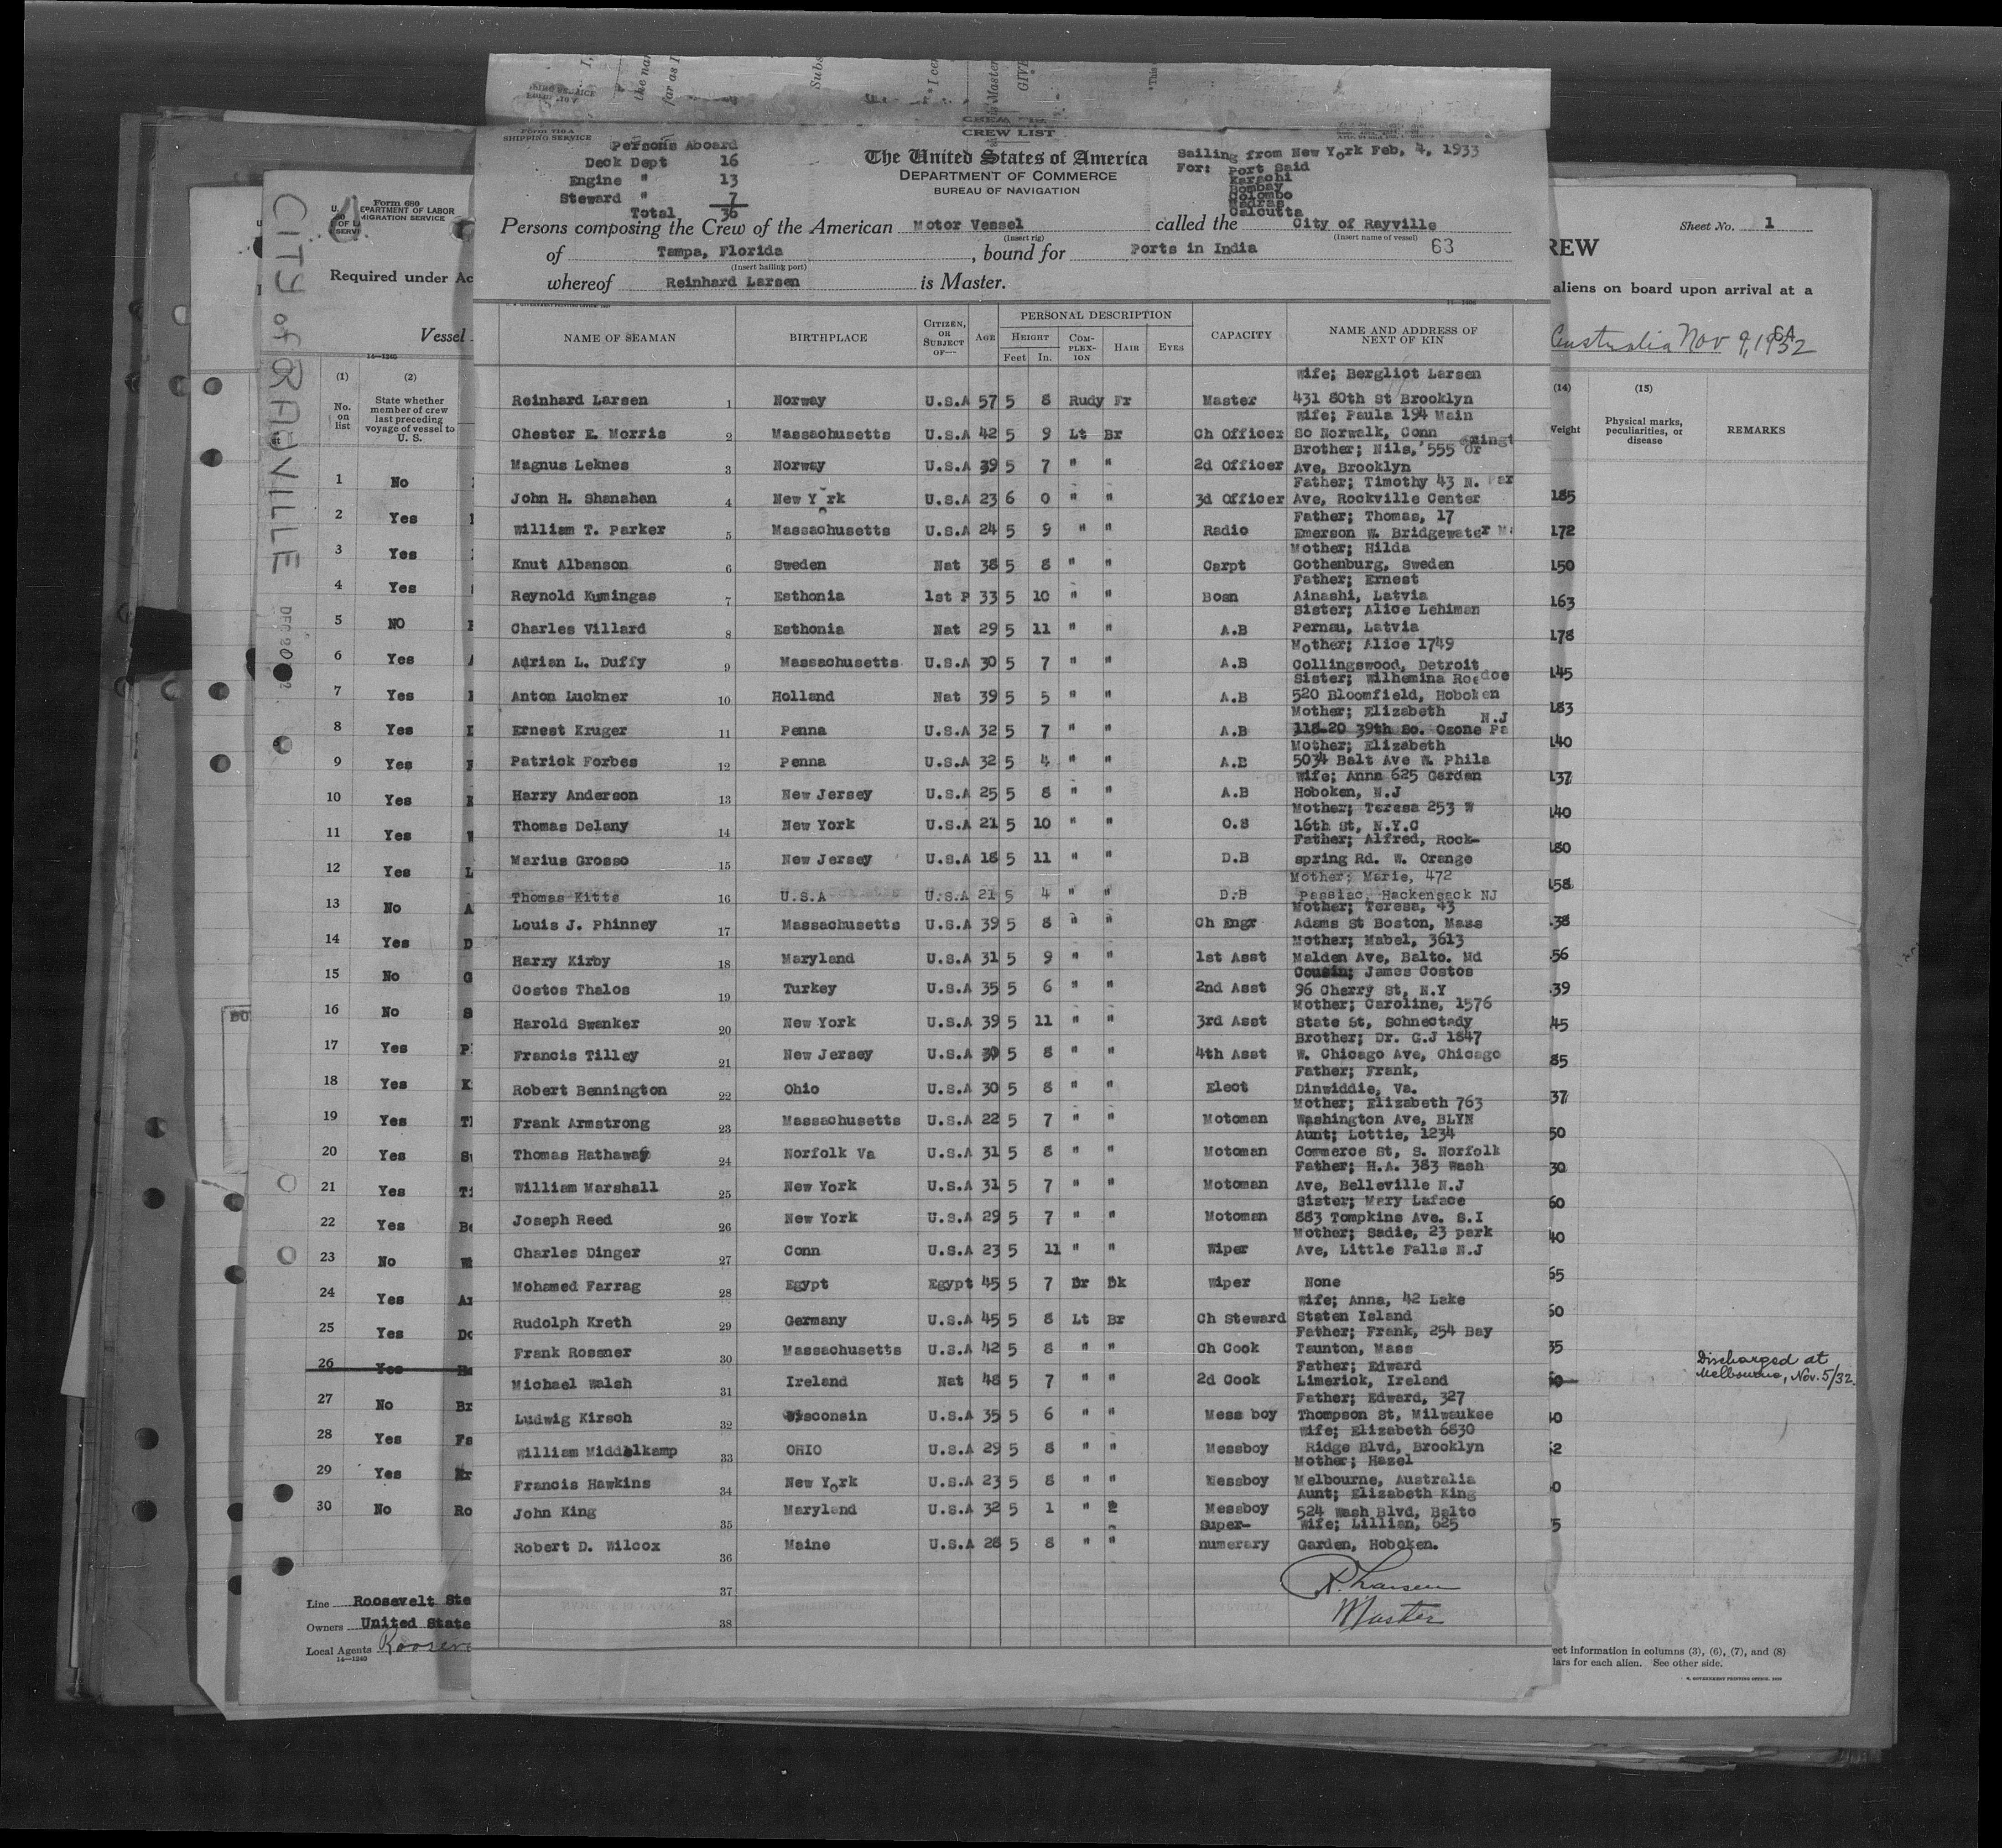 CREW LIST
Form 710 A
SHIPPING SERVICE
Persons Aboard
Deck Dept 16
Engine " 13
Steward " 7
Total 36
The United States of America
DEPARTMENT OF COMMERCE
BUREAU OF NAVIGATION
Sailing from New York Feb, 4, 1933
For: Port Said
Karachi
Bombay
Colombo
Madras
Calcutta
Persons composing the Crew of the American Motor Vessel called the City of Rayville
(Insert rig) (Insert name of vessel)
of Tampa, Florida, bound for Ports in India 63
(Insert hailing port)
whereof Reinhard Larsen is Master.
NAME OF SEAMAN BIRTHPLACE CITIZEN, OR SUBJECT OF— AGE PERSONAL DESCRIPTION CAPACITY NAME AND ADDRESS OF NEXT OF KIN
HEIGHT COM-PLEX-ION HAIR EYES
Feet In.
Wife; Bergliot Larsen
Reinhard Larsen 1 Norway U.S.A 57 5 8 Rudy Fr Master 431 80th St Brooklyn
Wife; Paula 194 Main
Chester E. Morris 2 Massachusetts U.S.A 42 5 9 Lt Br Ch Officer So Norwalk, Conn
Brother; Nils, 555 Or
Magnus Leknes 3 Norway U.S.A 39 5 7 " " 2d Officer Ave, Brooklyn
Father; Timothy 43 N. Par
John H. Shanahan 4 New Y rk U.S.A 23 6 0 " " 3d Officer Ave, Rockville Center
Father; Thomas, 17
William T. Parker 5 Massachusetts U.S.A 24 5 9 " " Radio Emerson W. Bridgewater
Mother; Hilda
Knut Albanson 6 Sweden Nat 38 5 8 " " Carpt Gothenburg, Sweden
Father; Ernest
Reynold Kumingas 7 Esthonia 1st P 33 5 10 " " Bosn Ainashi, Latvia
Sister; Alice Lehiman
Charles Villard 8 Esthonia Nat 29 5 11 " " A.B Pernau, Latvia
Mother; Alice 1749
Adrian L. Duffy 9 Massachusetts U.S.A 30 5 7 " " A.B Collingswood, Detroit
Sister; Wilhemina Roedoe
Anton Luckner 10 Holland Nat 39 5 5 " " A.B 520 Bloomfield, Hoboken
Mother; Elizabeth N.J
Ernest Kruger 11 Penna U.S.A 32 5 7 " " A.B 118-20 39th So. Ozone Pa
Mother; Elizabeth
Patrick Forbes 12 Penna U.S.A 32 5 4 " " A.B 5034 Balt Ave W. Phila
Wife; Anna 625 Garden
Harry Anderson 13 New Jersey U.S.A 25 5 8 " " A.B Hoboken, N.J
Mother; Teresa 253 W
Thomas Delany 14 New York U.S.A 21 5 10 " " O.S 16th St, N.Y.C
Father; Alfred, Rock-
Marius Grosso 15 New Jersey U.S.A 18 5 11 " " D.B spring Rd. W. Orange
Mother; Marie, 472
Thomas Kitts 16 U.S.A U.S.A 21 5 4 " " D.B Passiac, Hackensack NJ
Mother; Teresa, 43
Louis J. Phinney 17 Massachusetts U.S.A 39 5 8 " " Ch Engr Adams St Boston, Mass
Mother; Mabel, 3613
Harry Kirby 18 Maryland U.S.A 31 5 9 " " 1st Asst Malden Ave, Balto. Md
Cousin; James Costos
Costos Thalos 19 Turkey U.S.A 35 5 6 " " 2nd Asst 96 Cherry St, N.Y
Mother; Caroline, 1576
Harold Swanker 20 New York U.S.A 39 5 11 " " 3rd Asst State St, Schnectady
Brother; Dr. G.J 1847
Francis Tilley 21 New Jersey U.S.A 30 5 8 " " 4th Asst W. Chicago Ave, Chicago
Father; Frank,
Robert Bennington 22 Ohio U.S.A 30 5 8 " " Elect Dinwiddie, Va.
Mother; Elizabeth 763
Frank Armstrong 23 Massachusetts U.S.A 22 5 7 " " Motoman Washington Ave, BLYN
Aunt; Lottie, 1234
Thomas Hathaway 24 Norfolk Va U.S.A 31 5 8 " " Motoman Commerce St, S. Norfolk
Father; H.A. 383 Wash
William Marshall 25 New York U.S.A 31 5 7 " " Motoman Ave, Belleville N.J
Sister; Mary Laface
Joseph Reed 26 New York U.S.A 29 5 7 " " Motoman 883 Tompkins Ave. S.I
Mother; Sadie, 23 park
Charles Dinger 27 Conn U.S.A 23 5 11 " " Wiper Ave, Little Falls N.J
Mohamed Farrag 28 Egypt Egypt 45 5 7 Br Bk Wiper None
Wife; Anna, 42 Lake
Rudolph Kreth 29 Germany U.S.A 45 5 8 Lt Br Ch Steward Staten Island
Father; Frank, 254 Bay
Frank Rosener 30 Massachusetts U.S.A 42 5 8 " " Ch Cook Taunton, Mass
Father; Edward
Michael Walsh 31 Ireland Nat 48 5 7 " " 2d Cook Limerick, Ireland
Father; Edward, 327
Ludwig Kirsch 32 Wisconsin U.S.A 35 5 6 " " Mess boy Thompson St, Milwaukee
Wife; Elizabeth 6830
William Middelkamp 33 OHIO U.S.A 29 5 8 " " Messboy Ridge Blvd, Brooklyn
Mother; Hazel
Francis Hawkins 34 New York U.S.A 23 5 8 " " Messboy Melbourne, Australia
Aunt; Elizabeth King
John King 35 Maryland U.S.A 32 5 1 " Messboy 524 Wash Blvd, Balto
Super- Wife; Lillian, 625
Robert D. Wilcox 36 Maine U.S.A 28 5 8 " " numerary Garden, Hoboken.
37
38
R. Larsen
Master
CITY of RAYVILLE
Form 680
DEPARTMENT OF LABOR
IMMIGRATION SERVICE
Required under Ac
Vessel
14—1240
(1) (2)
No. on list
State whether member of crew last preceding voyage of vessel to U. S.
1 No
2 Yes
3 Yes
4 Yes
5 NO
6 Yes
7 Yes
8 Yes
9 Yes
10 Yes
11 Yes
12 Yes
13 No
14 Yes
15 No
16 No
17 Yes
18 Yes
19 Yes
20 Yes
21 Yes
22 Yes
23 No
24 Yes
25 Yes
26 Yes
27 No
28 Yes
29 Yes
30 No
Line Roosevelt Ste
Owners United State
Local Agents Rooseve
14—1240
Sheet No. 1
REW
aliens on board upon arrival at a
Australia Nov 9, 1932
(14) (15)
Weight
Physical marks, peculiarities, or disease
REMARKS
185
172
150
163
178
145
183
140
137
140
180
158
38
56
39
45
85
37
50
30
60
40
65
60
35
Discharged at
Melbourne, Nov. 5/32.
ect information in columns (3), (6), (7), and (8)
lars for each alien. See other side.